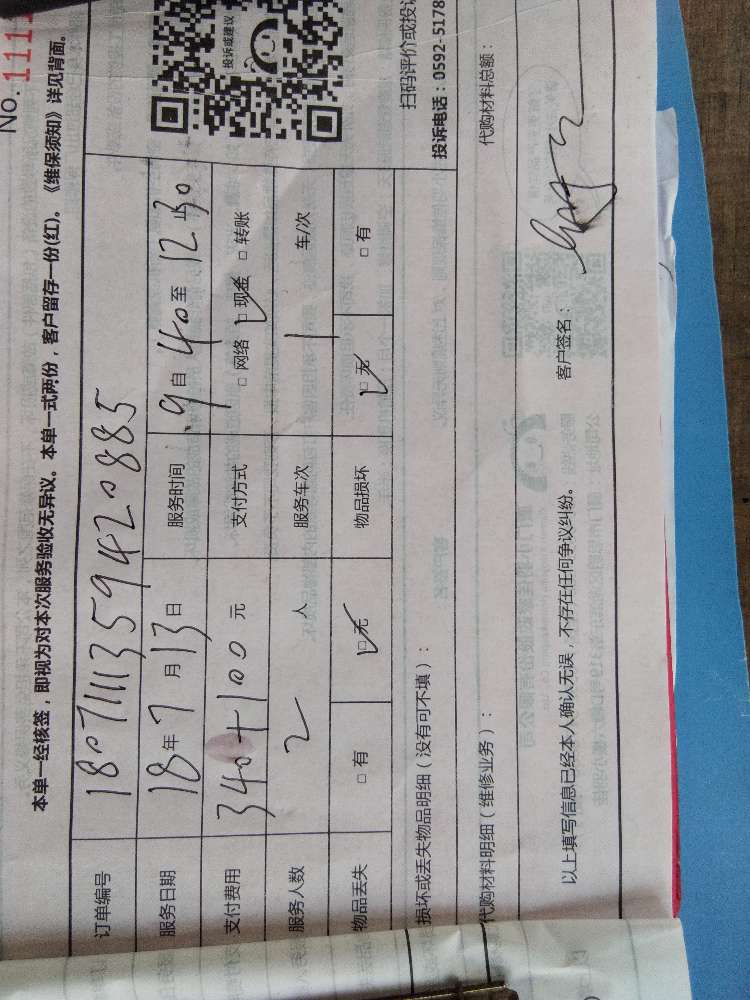 No. 1111
本单一经核签，即视为对本次服务验收无异议。本单一式两份，客户留存一份(红)。《维保须知》详见背面。
投诉或建议
订单编号 1807111359420885
服务日期 18年7月13日 服务时间 9自40至12止30
支付费用 340+100元 支付方式 □网络 □现金 □转账
服务人数 2 人 服务车次 1 车/次
物品丢失 □有 □无 物品损坏 □无 □有
扫码评价或投诉
投诉电话：0592-5178
损坏或丢失物品明细（没有可不填）：
代购材料明细（维修业务）： 代购材料总额：
以上填写信息已经本人确认无误，不存在任何争议纠纷。 客户签名：